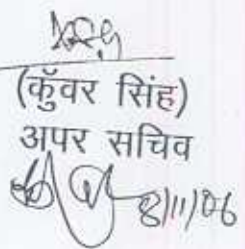 (कुॅवर सिंह)
अपर सचिव
8/11/06